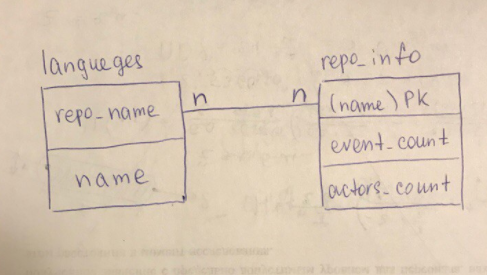 langueges
repo_name
name
n
n
repo_info
(name) PK
event_count
actors_count